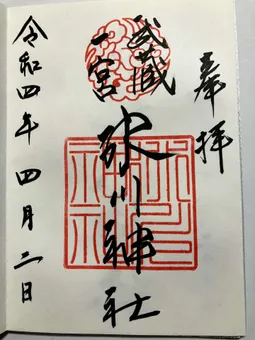 奉拝
武蔵
一宮
氷川神社
令和四年四月二日
氷川神社